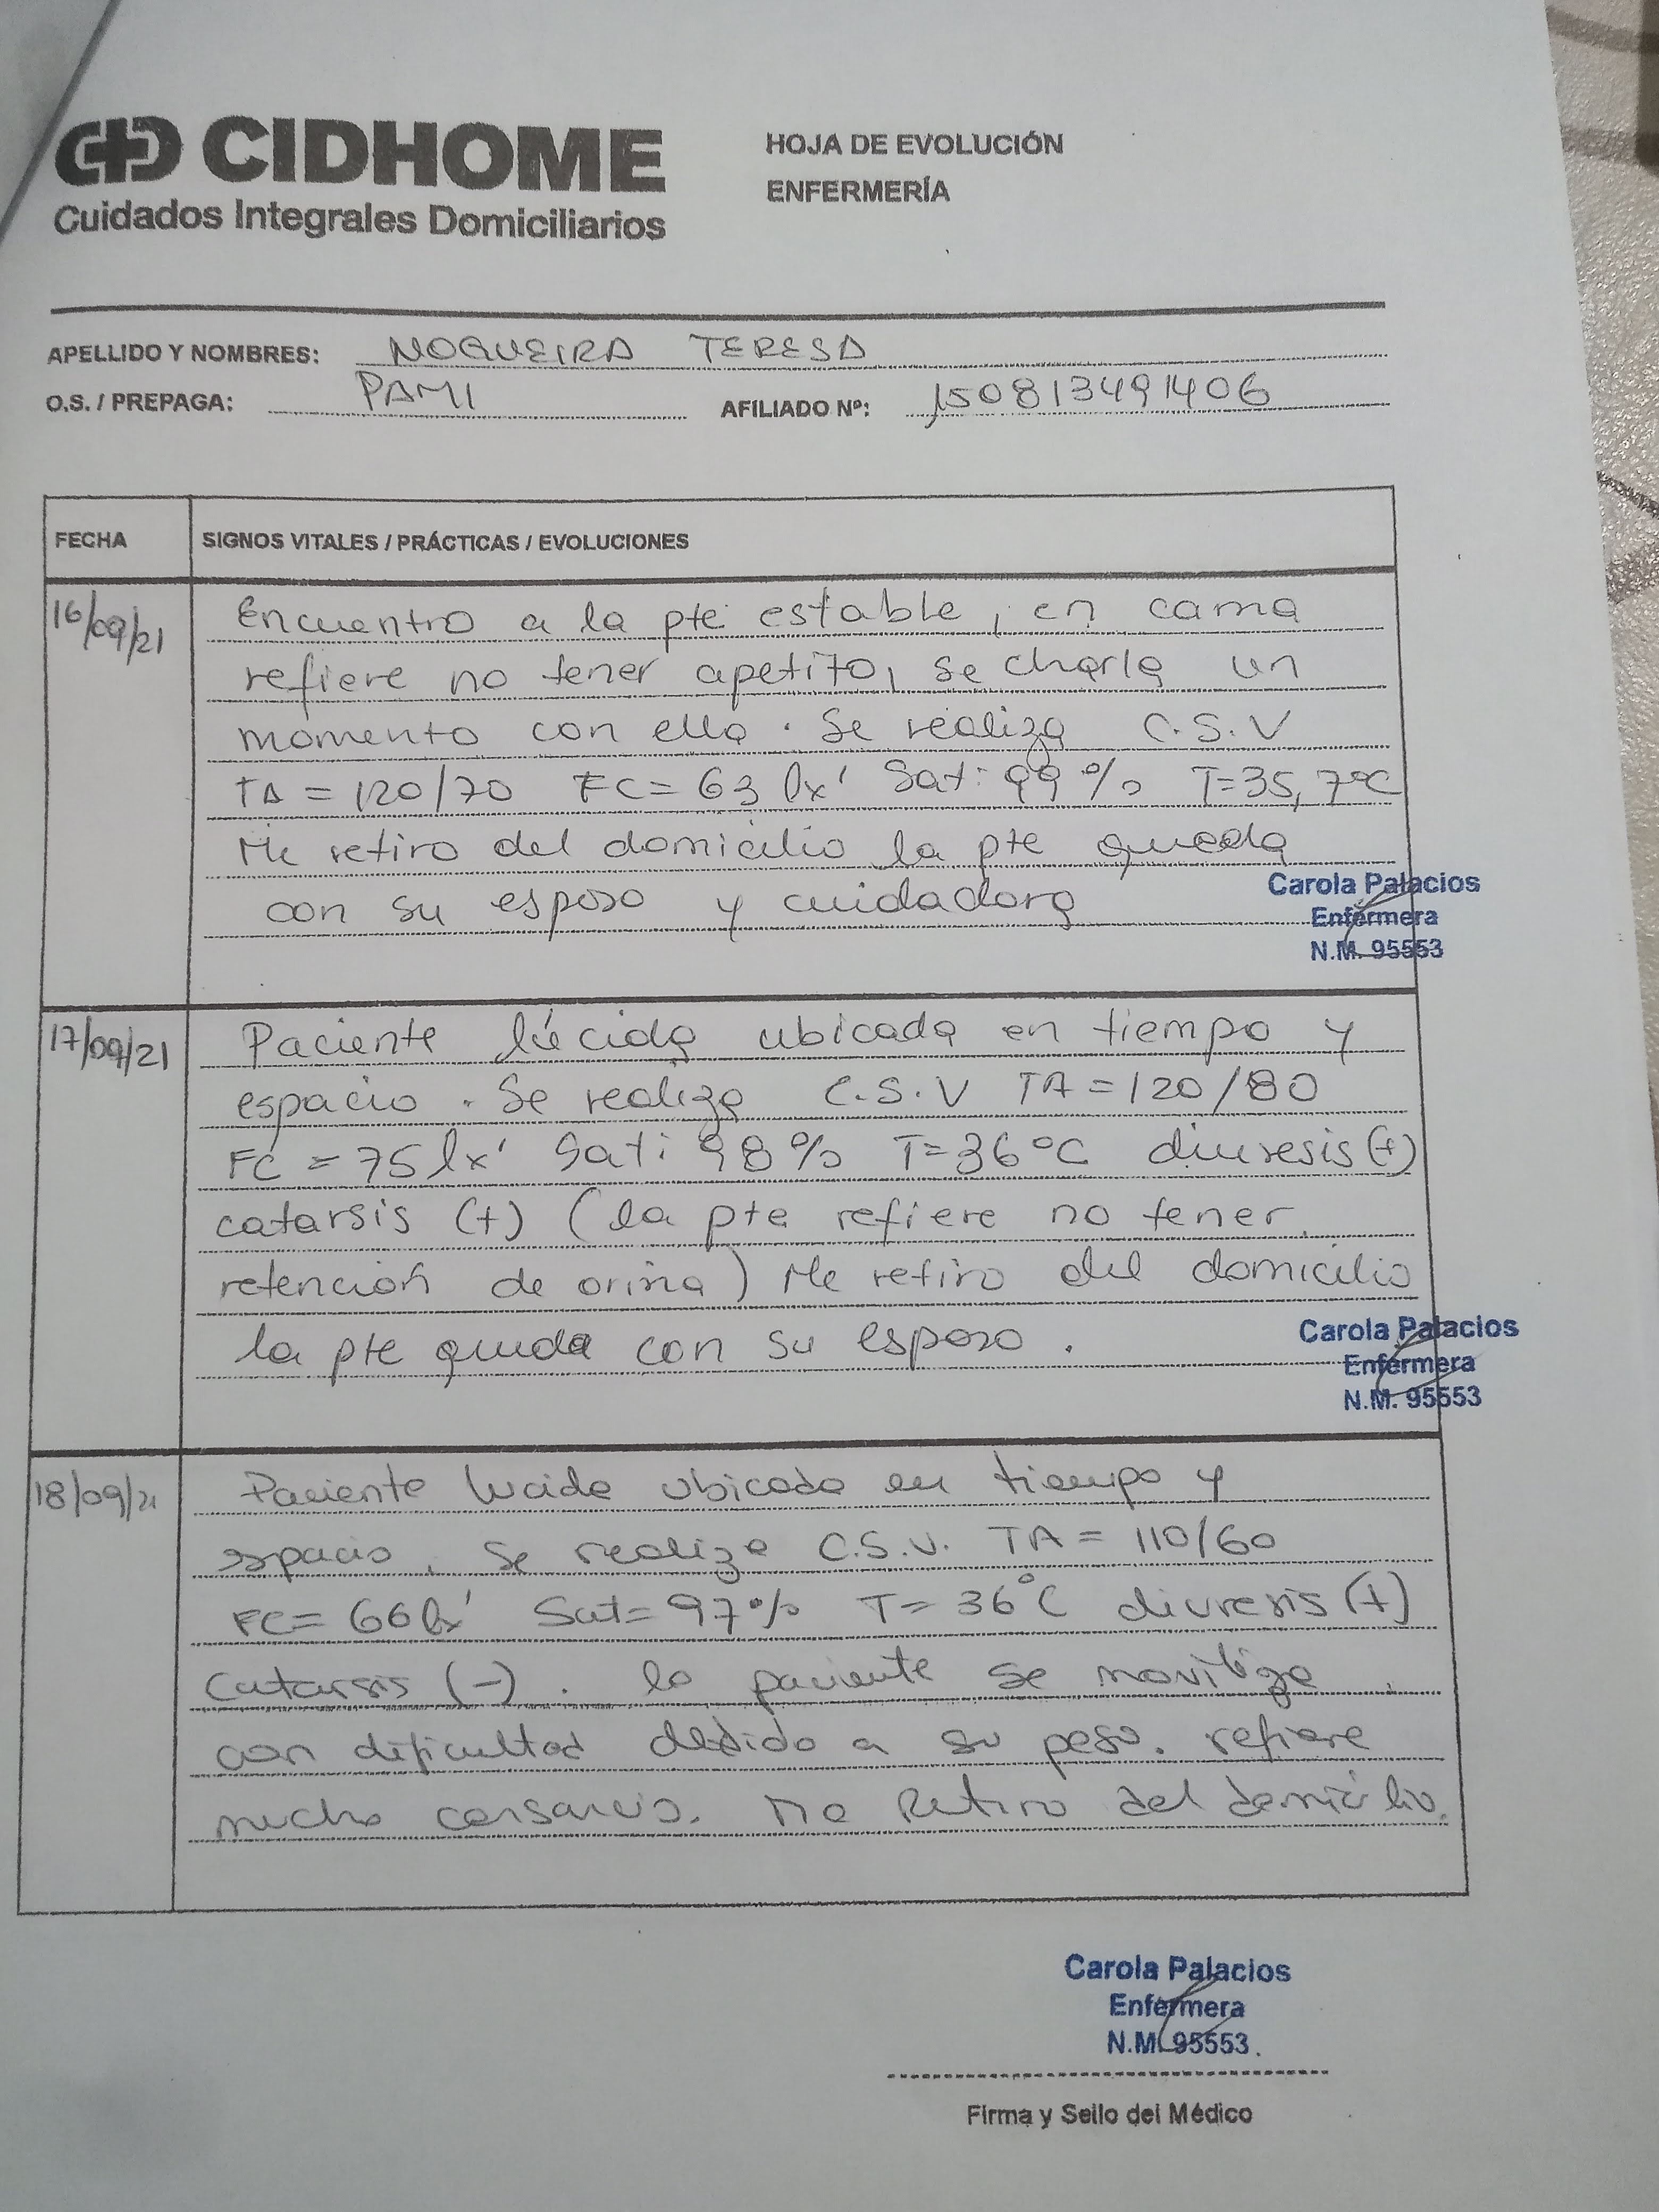 CIDHOME
Cuidados Integrales Domiciliarios
HOJA DE EVOLUCIÓN
ENFERMERÍA
APELLIDO Y NOMBRES: NOQUEIRA TERESA
O.S. / PREPAGA: PAMI AFILIADO Nº: 150813491406
FECHA SIGNOS VITALES / PRÁCTICAS / EVOLUCIONES
16/09/21 Encuentro a la pte estable, en cama
refiere no tener apetito, se charla un
momento con ella. Se realiza C.S.V
TA = 120/70 FC = 63 lx' Sat: 99% T=35,7°C
Me retiro del domicilio la pte queda
con su esposo y cuidadora
Carola Palacios
Enfermera
N.M. 95553
17/09/21 Paciente lúcida ubicada en tiempo y
espacio. Se realiza C.S.V TA = 120/80
FC = 75 lx' Sat: 98% T=36°C diuresis (+)
catarsis (+) (la pte refiere no tener
retención de orina) Me retiro del domicilio
la pte queda con su esposo.
Carola Palacios
Enfermera
N.M. 95553
18/09/21 Paciente lucida ubicada en tiempo y
espacio. Se realiza C.S.V. TA = 110/60
FC = 66 lx' Sat = 97% T = 36°C diuresis (+)
Catarsis (-). la paciente se moviliza
con dificultad debido a su peso. refiere
mucho cansancio. Me Retiro del domicilio.
Carola Palacios
Enfermera
N.M. 95553.
Firma y Sello del Médico